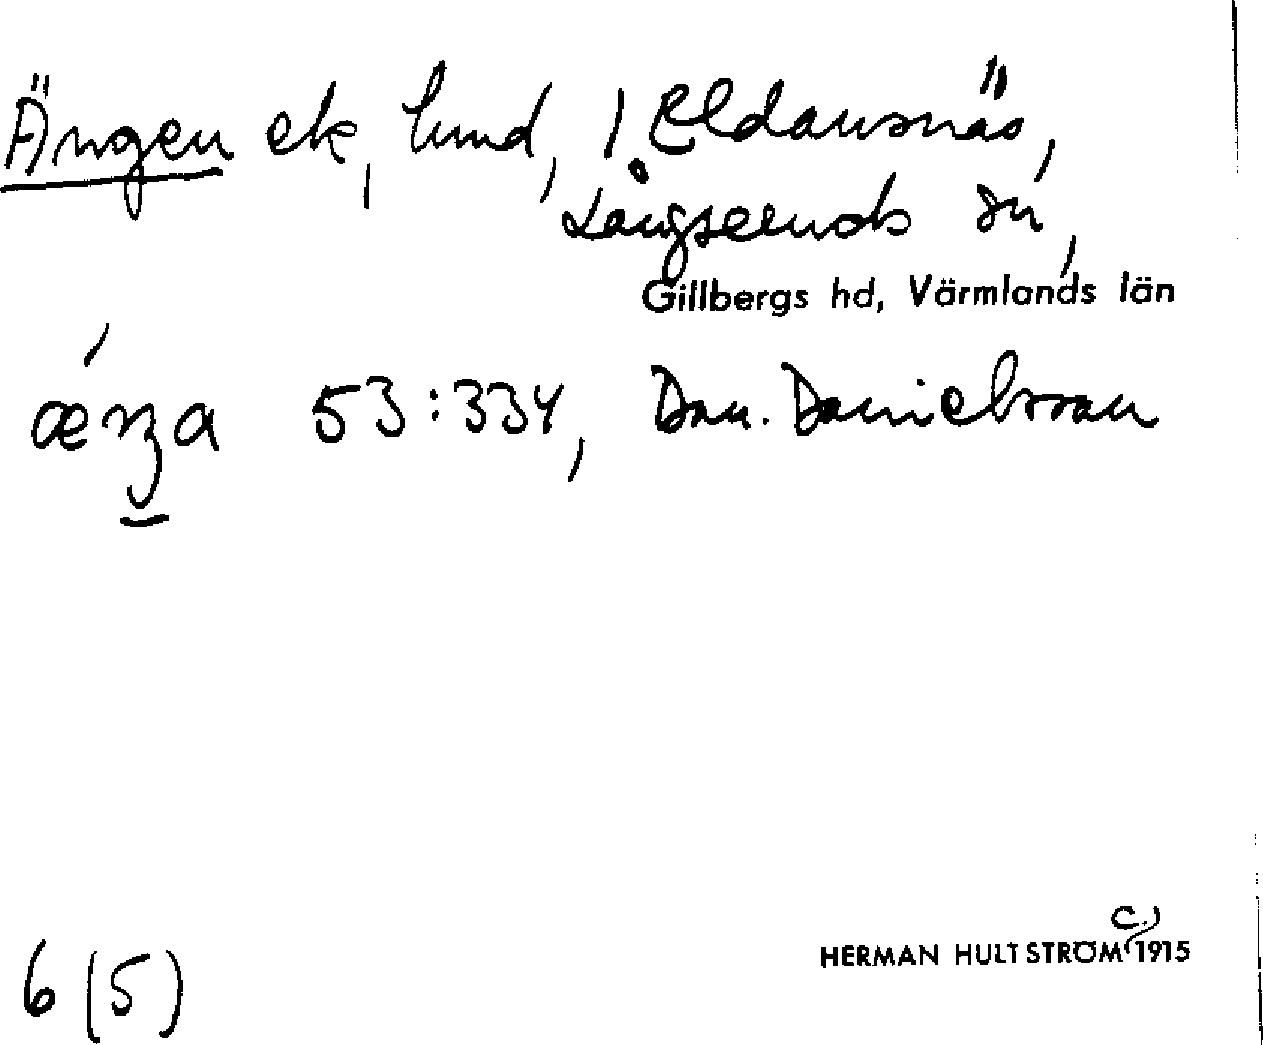 Ängen ek, lund, 1 Eldansnäs,
Långseruds sn,
Gillbergs hd, Värmlands län
53:334, Dan. Danielsson
C.)
HERMAN HULTSTRÖM 1915
6 (5)